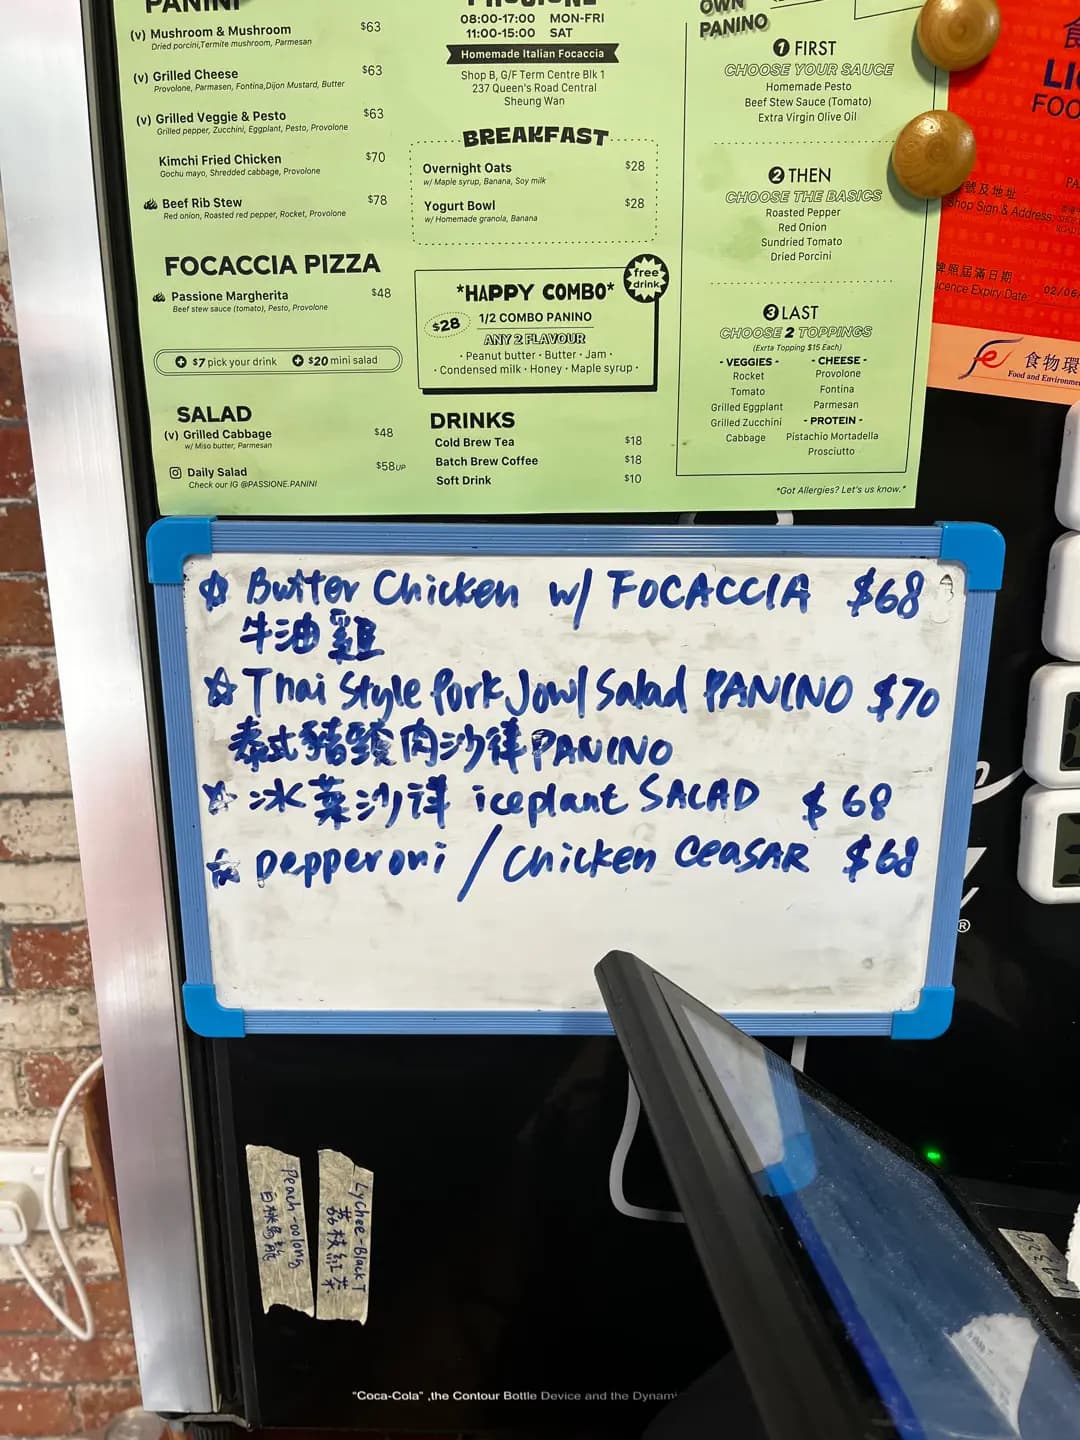 PANINI
(v) Mushroom & Mushroom $63
Dried porcini,Termite mushroom, Parmesan
(v) Grilled Cheese $63
Provolone, Parmasen, Fontina,Dijon Mustard, Butter
(v) Grilled Veggie & Pesto $63
Grilled pepper, Zucchini, Eggplant, Pesto, Provolone
Kimchi Fried Chicken $70
Gochu mayo, Shredded cabbage, Provolone
Beef Rib Stew $78
Red onion, Roasted red pepper, Rocket, Provolone
FOCACCIA PIZZA
Passione Margherita $48
Beef stew sauce (tomato), Pesto, Provolone
$7 pick your drink $20 mini salad
SALAD
(v) Grilled Cabbage $48
w/ Miso butter, Parmesan
Daily Salad $58UP
Check our IG @PASSIONE.PANINI
08:00-17:00 MON-FRI
11:00-15:00 SAT
Homemade Italian Focaccia
Shop B, G/F Term Centre Blk 1
237 Queen's Road Central
Sheung Wan
BREAKFAST
Overnight Oats $28
w/ Maple syrup, Banana, Soy milk
Yogurt Bowl $28
w/ Homemade granola, Banana
free
drink
*HAPPY COMBO*
$28 1/2 COMBO PANINO
ANY 2 FLAVOUR
· Peanut butter · Butter · Jam ·
· Condensed milk · Honey · Maple syrup ·
DRINKS
Cold Brew Tea $18
Batch Brew Coffee $18
Soft Drink $10
OWN
PANINO
1 FIRST
CHOOSE YOUR SAUCE
Homemade Pesto
Beef Stew Sauce (Tomato)
Extra Virgin Olive Oil
2 THEN
CHOOSE THE BASICS
Roasted Pepper
Red Onion
Sundried Tomato
Dried Porcini
3 LAST
CHOOSE 2 TOPPINGS
(Exrta Topping $15 Each)
- VEGGIES -
Rocket
Tomato
Grilled Eggplant
Grilled Zucchini
Cabbage
- CHEESE -
Provolone
Fontina
Parmesan
- PROTEIN -
Pistachio Mortadella
Prosciutto
*Got Allergies? Let's us know.*
食
LI
FOO
號及地址
Shop Sign & Address:
牌照屆滿日期
icence Expiry Date: 02/06
食物環
Food and Environme
☆ Butter Chicken w/ FOCACCIA $68
牛油雞
☆ Thai Style Pork Jowl Salad PANINO $70
泰式豬頸肉沙律PANINO
☆ 冰菜沙律 iceplant SALAD $68
☆ pepperoni / Chicken CeaSAR $68
®
Peach-oolong
白桃烏龍
Lychee-Black T
荔枝紅茶
"Coca-Cola" ,the Contour Bottle Device and the Dynami